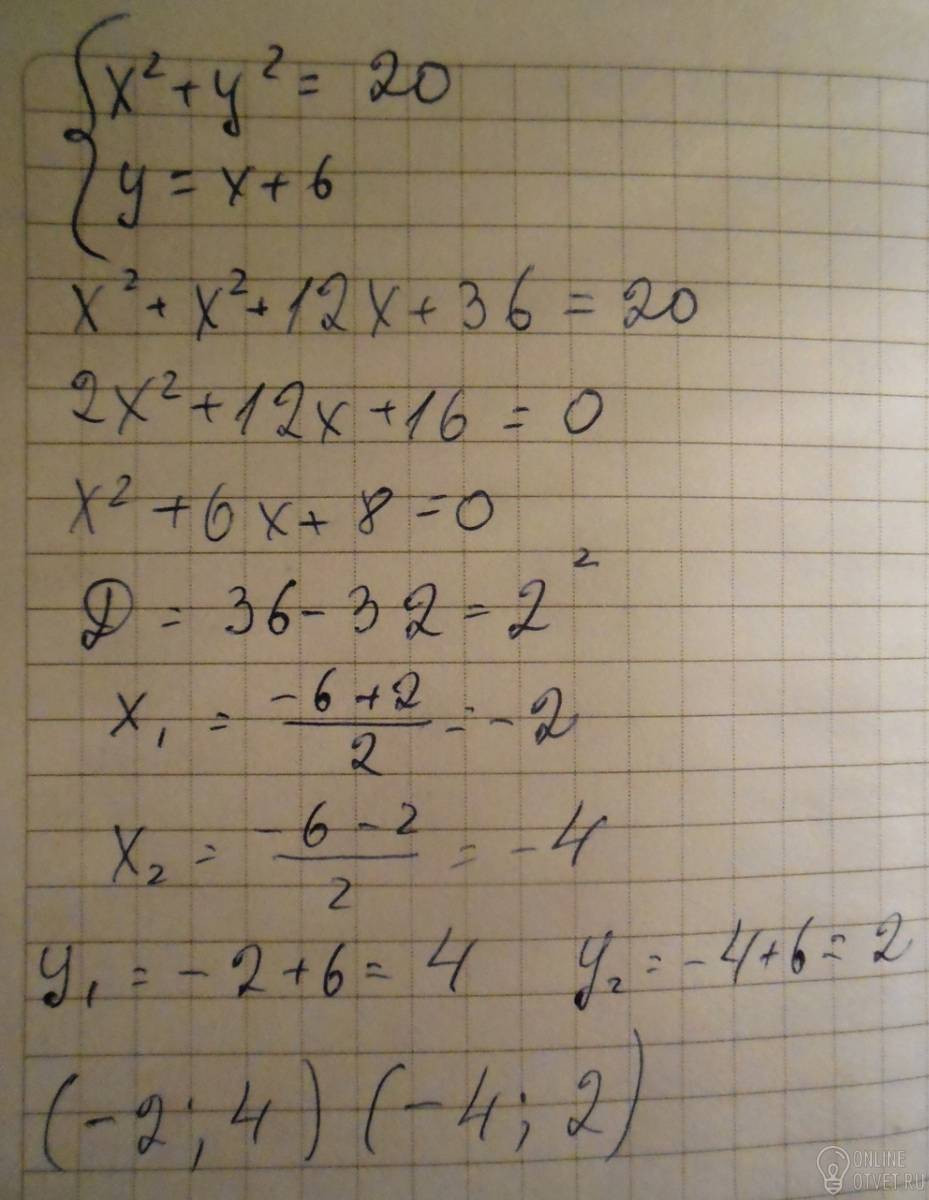 { x² + y² = 20
y = x + 6
x² + x² + 12x + 36 = 20
2x² + 12x + 16 = 0
x² + 6x + 8 = 0
D = 36 - 32 = 2²
x₁ = (-6 + 2)/2 = -2
x₂ = (-6 - 2)/2 = -4
y₁ = -2 + 6 = 4 y₂ = -4 + 6 = 2
(-2; 4) (-4; 2)
ONLINE
OTVET.RU